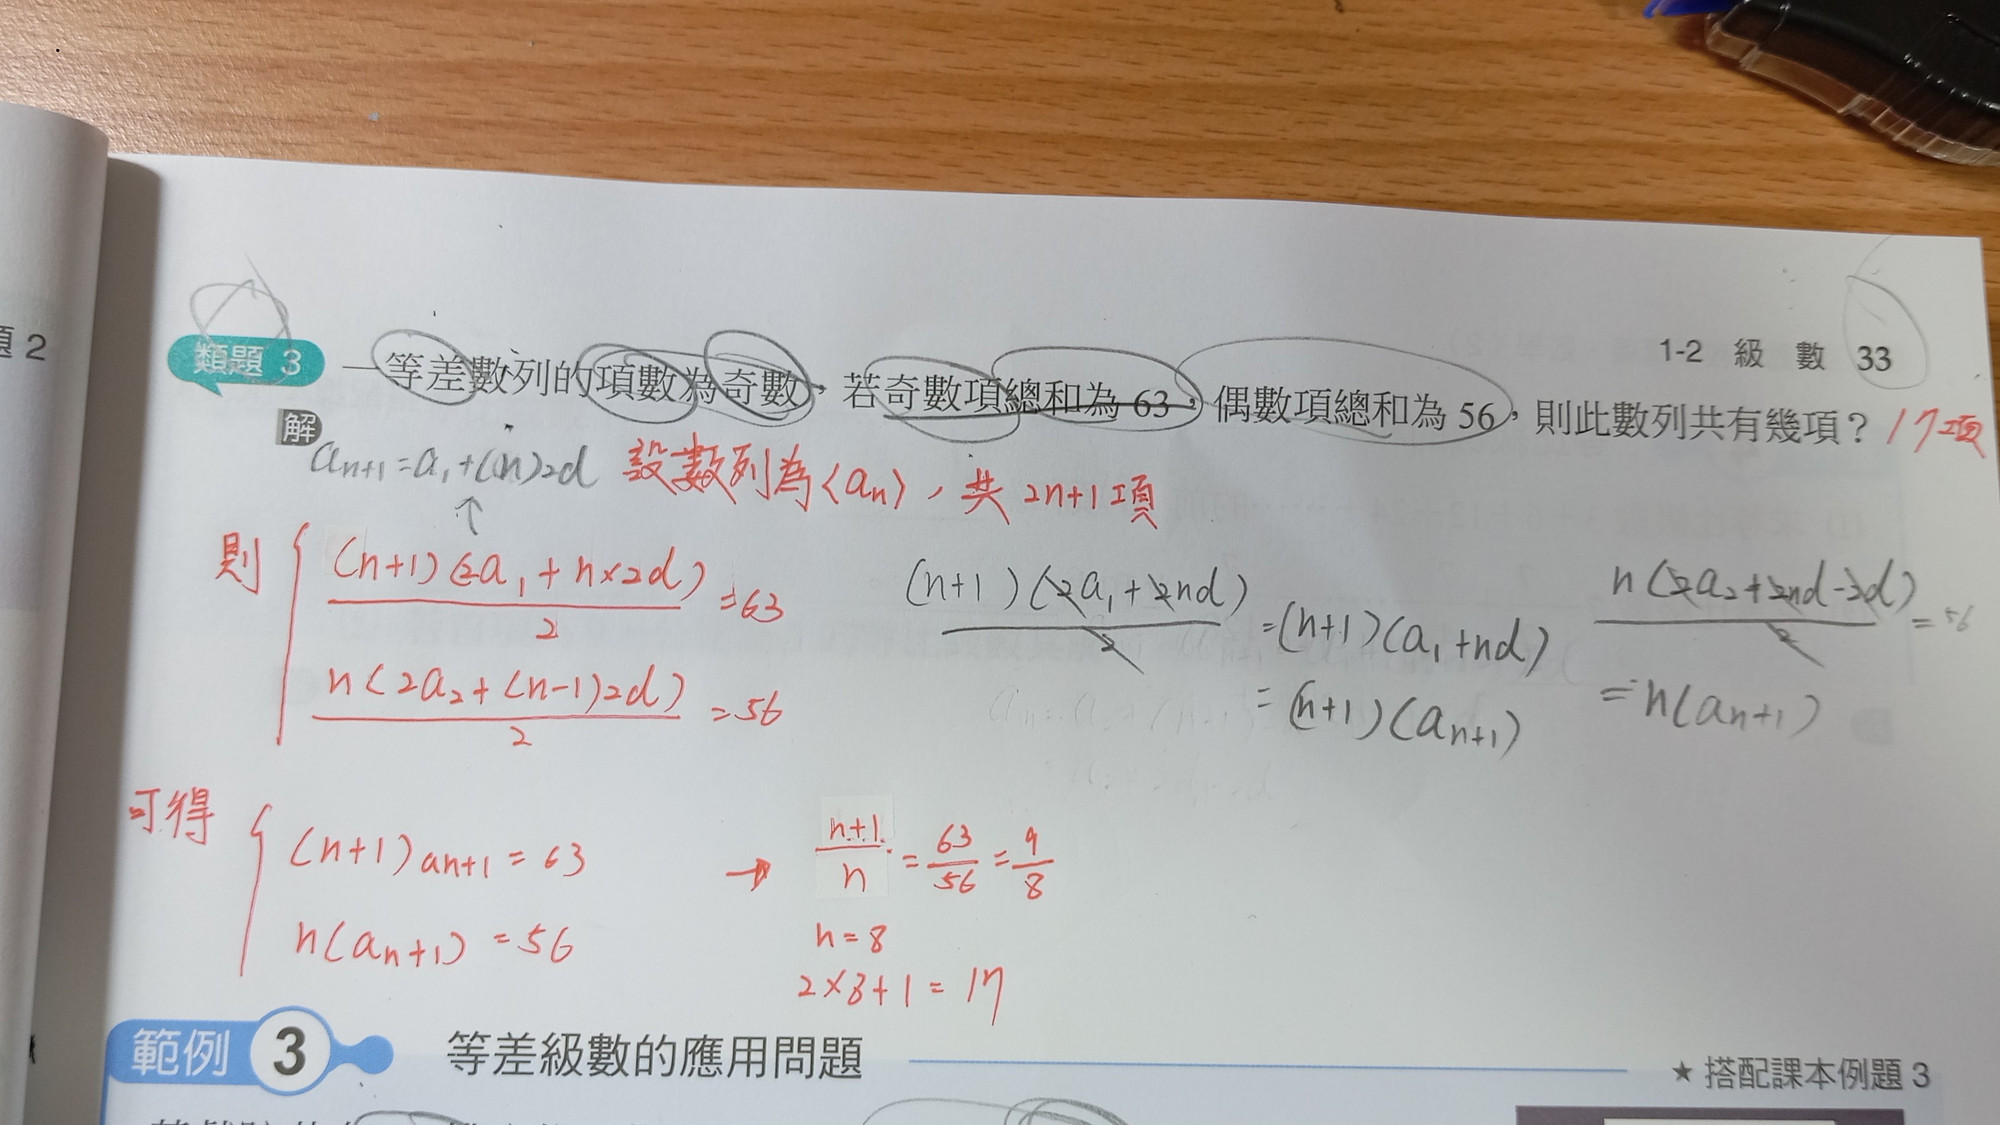 題 2
1-2 級 數 33
類題 3 一等差數列的項數為奇數，若奇數項總和為 63，偶數項總和為 56，則此數列共有幾項？ 17項
解
an+1 = a1 + (n)2d 設數列為〈an〉，共 2n+1 項
↑
則 (n+1)(2a1 + n×2d) / 2 = 63
n(2a2 + (n-1)2d) / 2 = 56
(n+1)(2a1 + 2nd) / 2 = (n+1)(a1 + nd)
= (n+1)(an+1)
n(2a2 + 2nd - 2d) / 2 = 56
= n(an+1)
可得 (n+1) an+1 = 63
n(an+1) = 56
→ n+1 / n = 63 / 56 = 9 / 8
n = 8
2×8+1 = 17
範例 3 等差級數的應用問題
★ 搭配課本例題 3